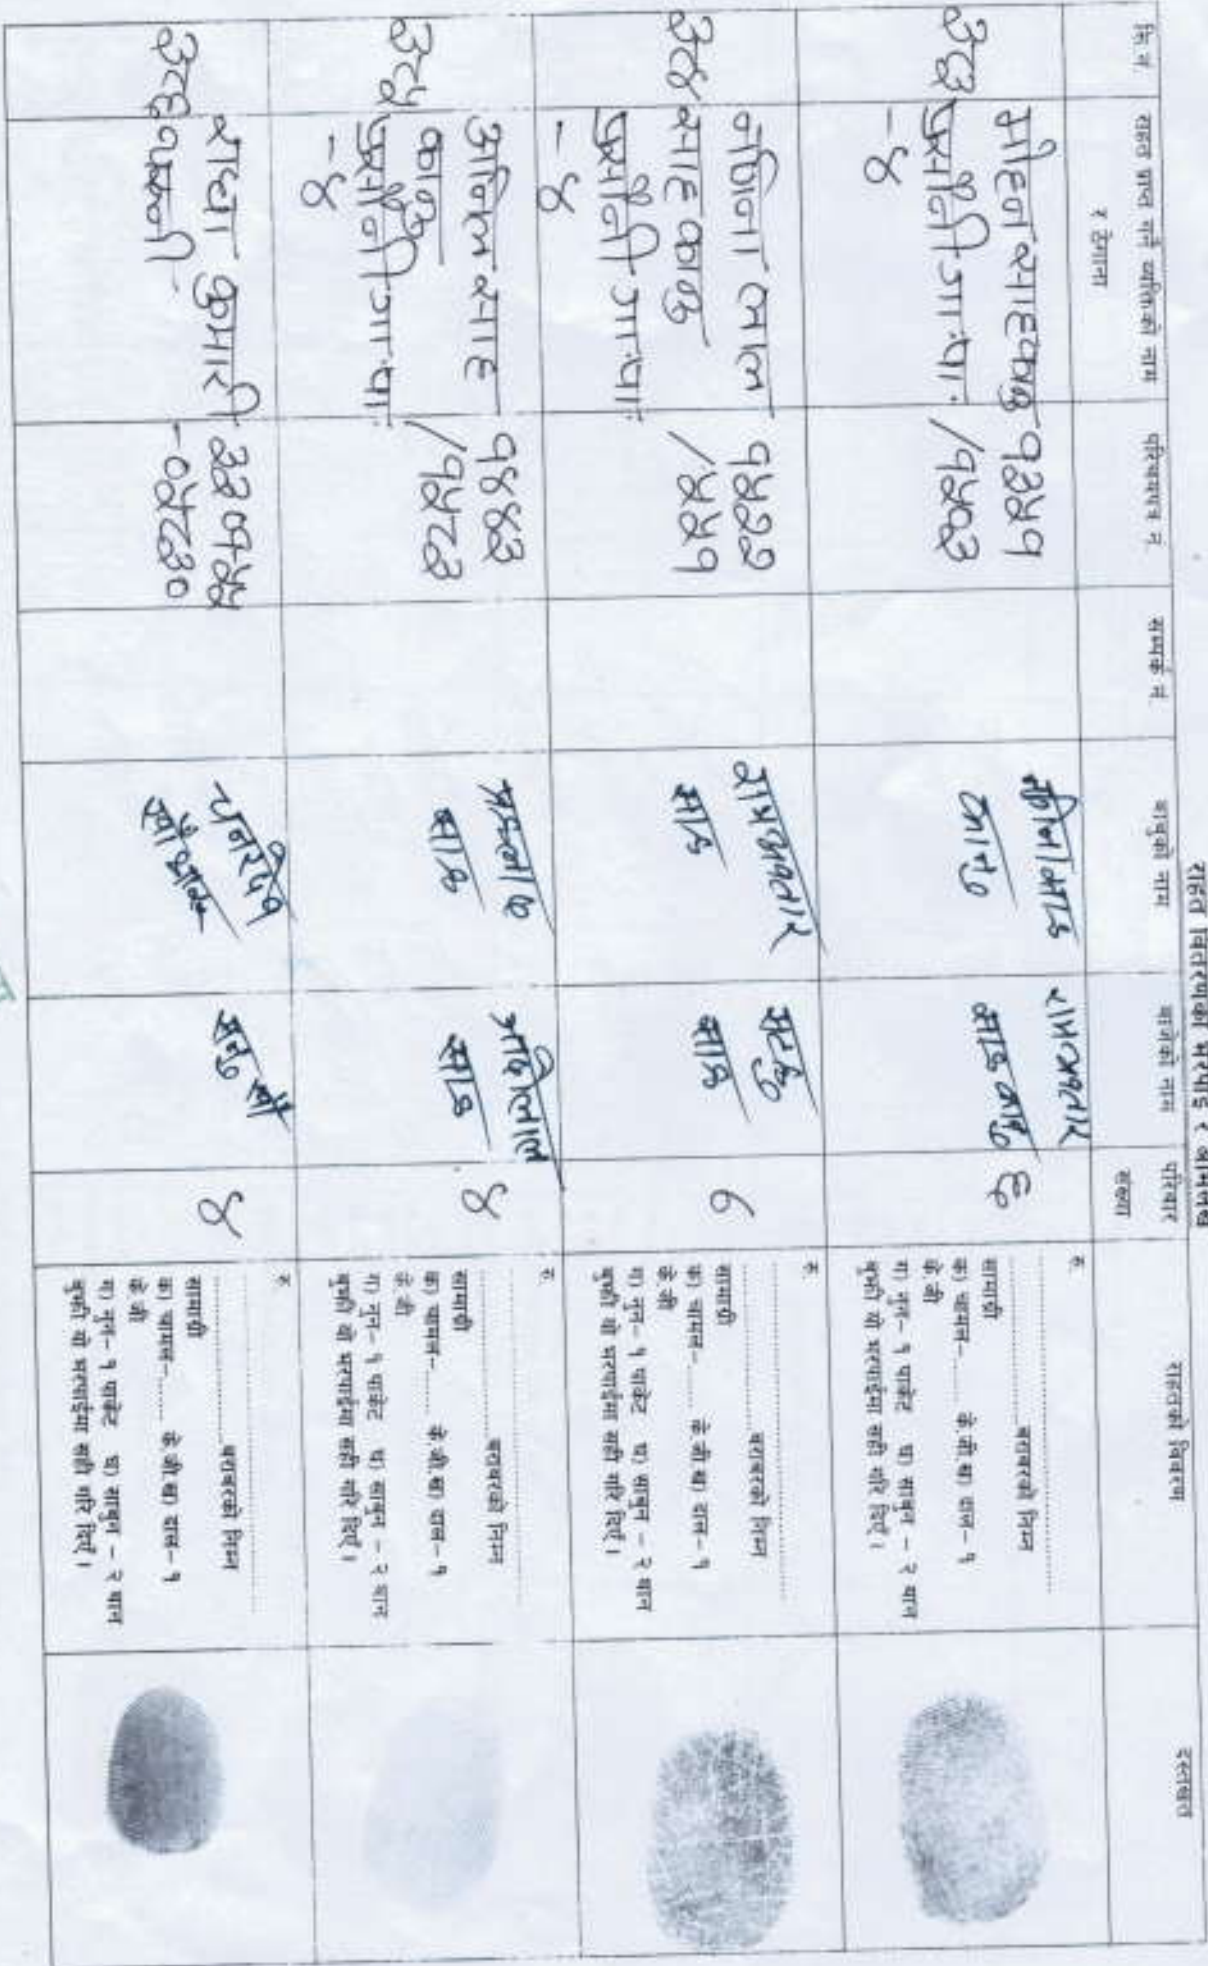 राहत वितरणको भरपाई र अभिलेख
सि.नं.
राहत प्राप्त गर्ने व्यक्तिको नाम
र ठेगाना
परिचयपत्र नं.
सम्पर्क नं.
बाबुको नाम
बाजेको नाम
परिवार
संख्या
राहतको विवरण
दस्तखत
३८३
मोहन साह कानु
प्रसौनी गा.पा.
-४
१३५१
/१५०३
कानु
रामअवतार
साह कानु
६
बराबरको निम्न
सामाग्री
क) चामल-...... के.जी.ख) दाल- १
के.जी
ग) नुन- १ पाकेट घ) साबुन - २ थान
बुझी यो भरपाईमा सही गरि दिएँ ।
३८४
लाल
साह कानु
प्रसौनी गा.पा.
-४
१५२२
/४५१
रामअवतार
साह
साह
७
रु.
बराबरको निम्न
सामाग्री
क) चामल-...... के.जी.ख) दाल- १
के.जी
ग) नुन- १ पाकेट घ) साबुन - २ थान
बुझी यो भरपाईमा सही गरि दिएँ ।
३८५
अनिल साह
कानु
प्रसौनी गा.पा.
-४
१४४३
/१५८३
प्रहलाद
साह
साह
४
रु.
बराबरको निम्न
सामाग्री
क) चामल-...... के.जी.ख) दाल- १
के.जी
ग) नुन- १ पाकेट घ) साबुन - २ थान
बुझी यो भरपाईमा सही गरि दिएँ ।
३८६
राधा कुमारी
३३७१३५
-०५८३०
४
रु.
बराबरको निम्न
सामाग्री
क) चामल-...... के.जी.ख) दाल- १
के.जी
ग) नुन- १ पाकेट घ) साबुन - २ थान
बुझी यो भरपाईमा सही गरि दिएँ ।